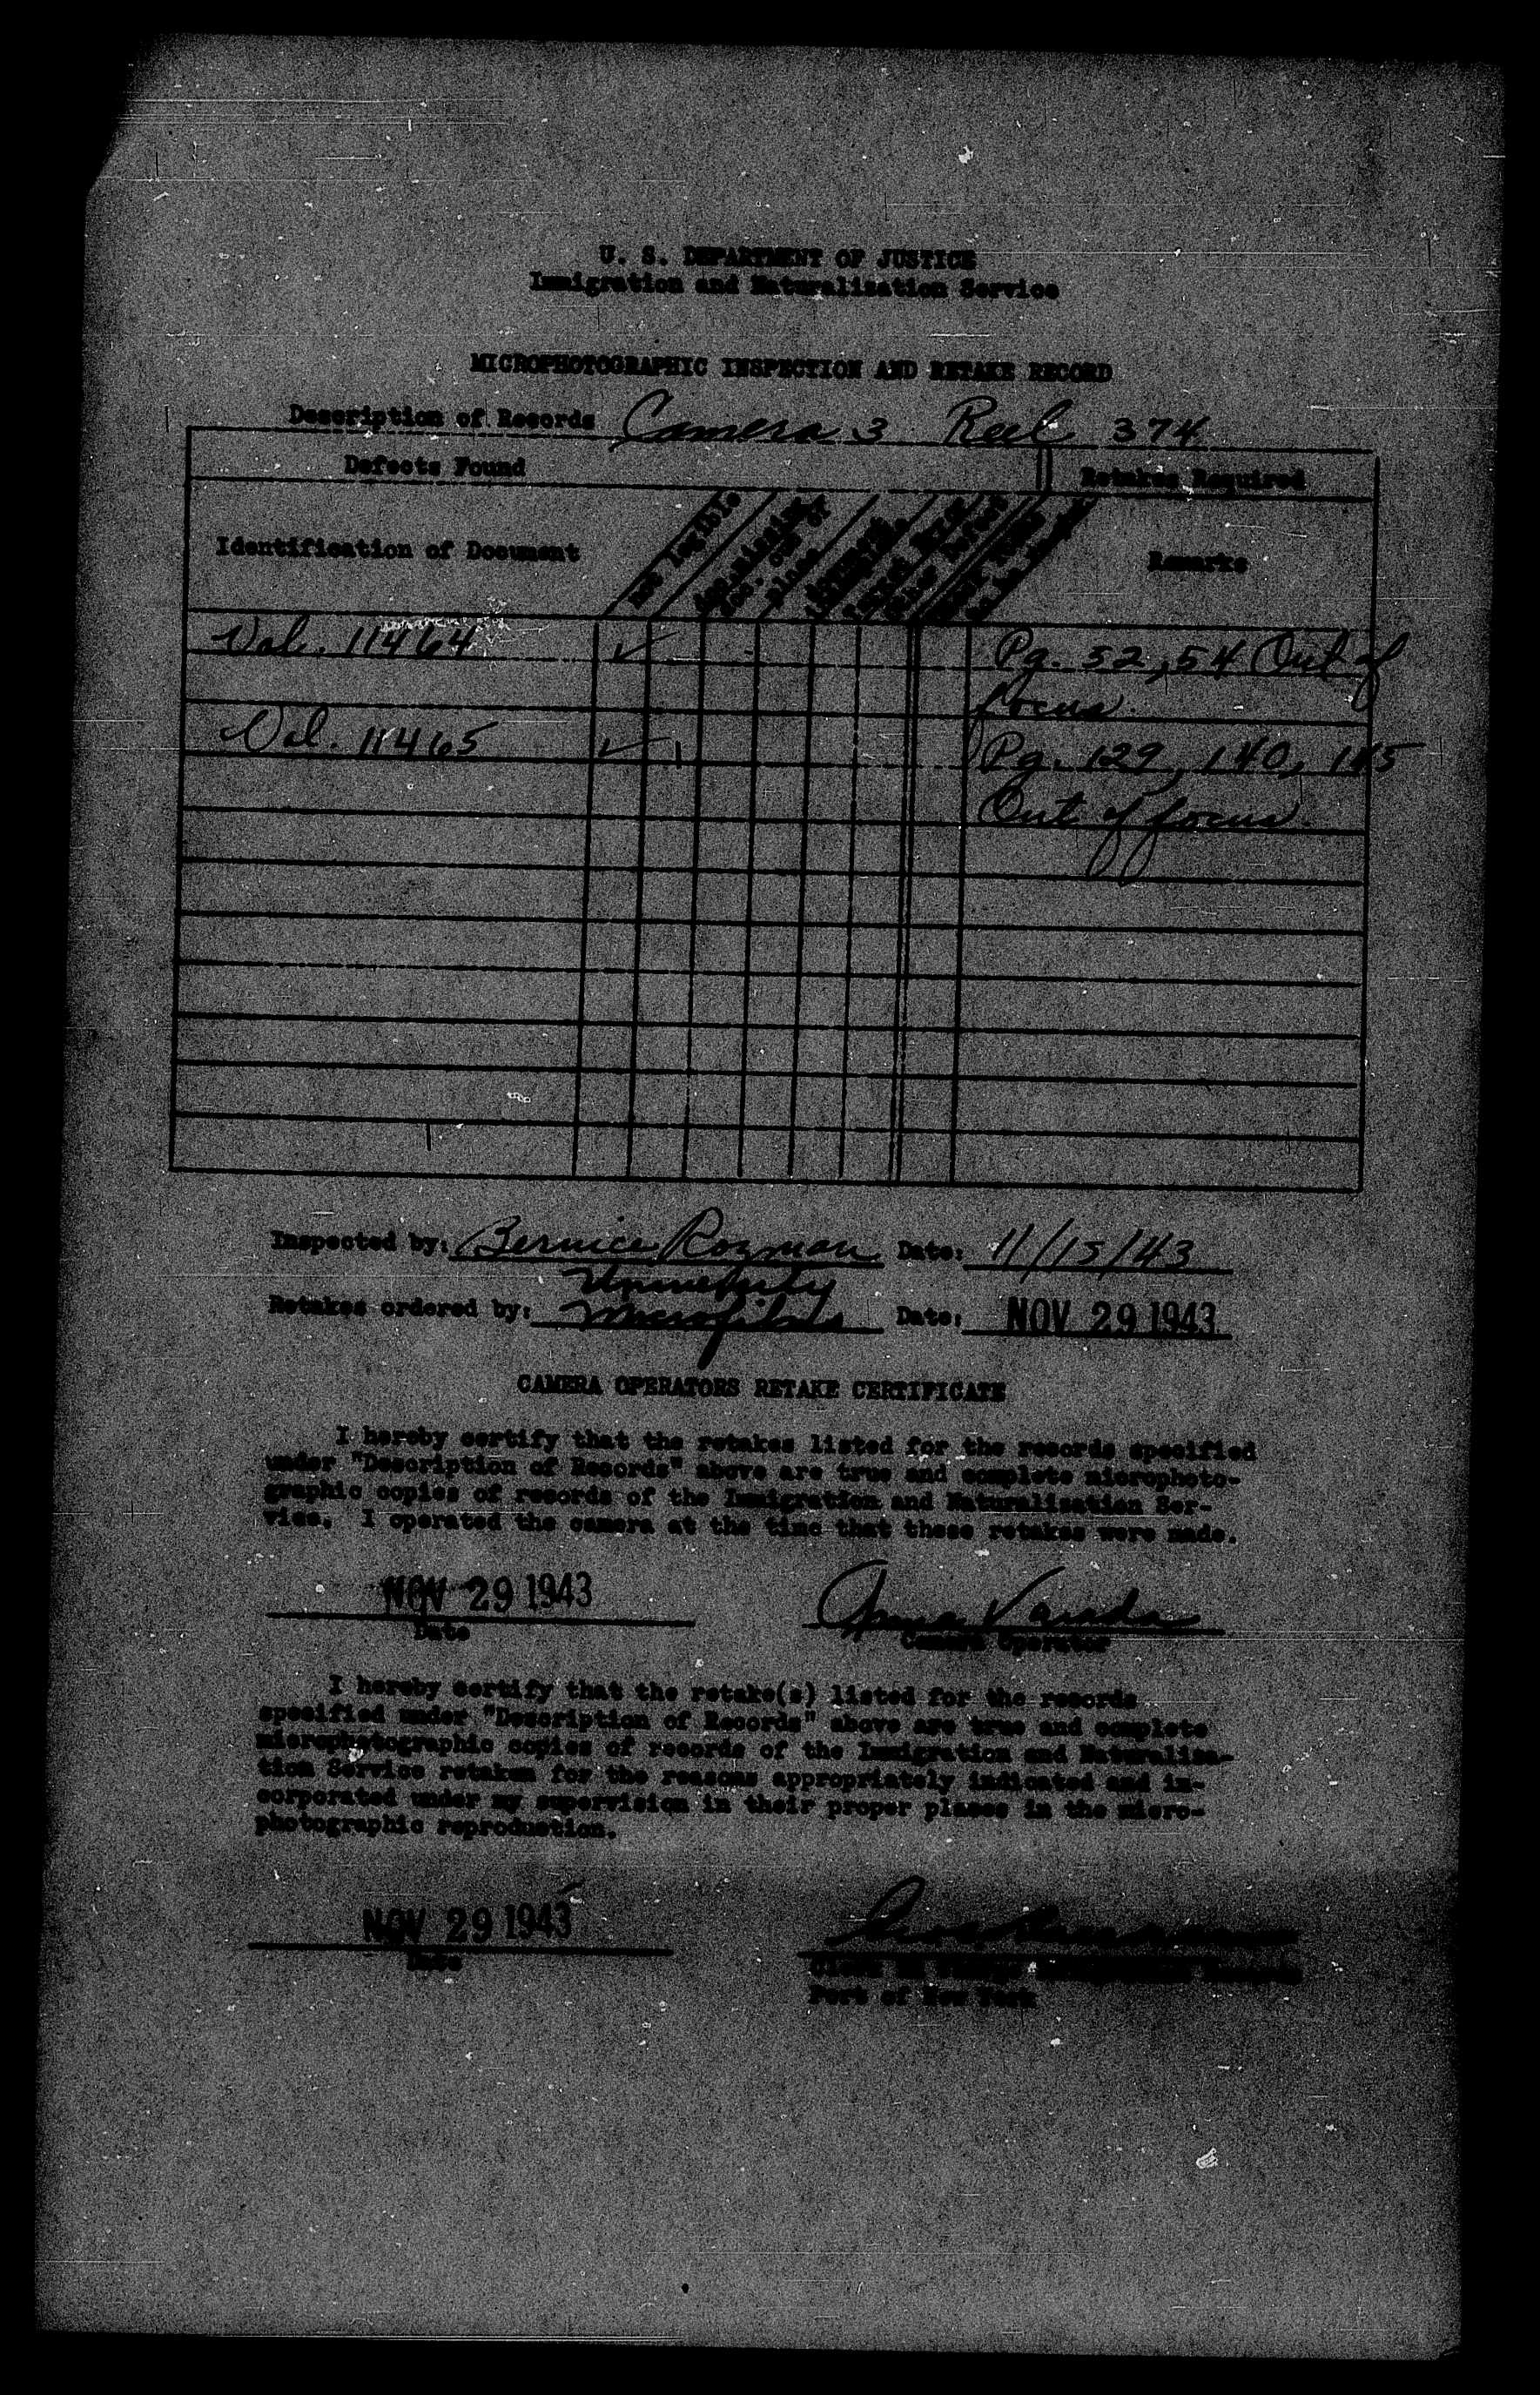 U. S. DEPARTMENT OF JUSTICE
Immigration and Naturalization Service
MICROPHOTOGRAPHIC INSPECTION AND RETAKE RECORD
Description of Records Camera 3 Reel 374
Defects Found Retakes Required
Identification of Document Not legible Remarks
Vol. 11464 ✓ Pg. 52, 54 Out of
focus
Vol. 11465 ✓ Pg. 129, 140,
Out of focus.
Inspected by: Bernice Rozman Date: 11/15/43
University
Retakes ordered by: Microfilms Date: NOV 29 1943
CAMERA OPERATORS RETAKE CERTIFICATE
I hereby certify that the retakes listed for the records specified
under "Description of Records" above are true and complete microphoto-
graphic copies of records of the Immigration and Naturalization Ser-
vice. I operated the camera at the time that these retakes were made.
NOV 29 1943 Anna
Date Camera Operator
I hereby certify that the retake(s) listed for the records
specified under "Description of Records" above are true and complete
microphotographic copies of records of the Immigration and Naturaliza-
tion Service retaken for the reasons appropriately indicated and in-
corporated under my supervision in their proper places in the micro-
photographic reproduction.
NOV 29 1943
Date
Port of New York